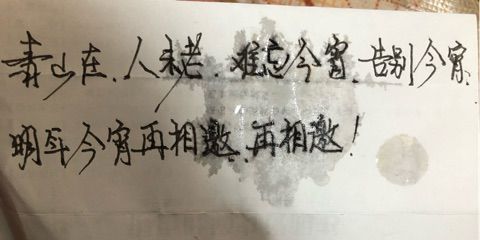 青山在、人未老、难忘今宵、告别今宵、
明年今宵再相邀、再相邀!